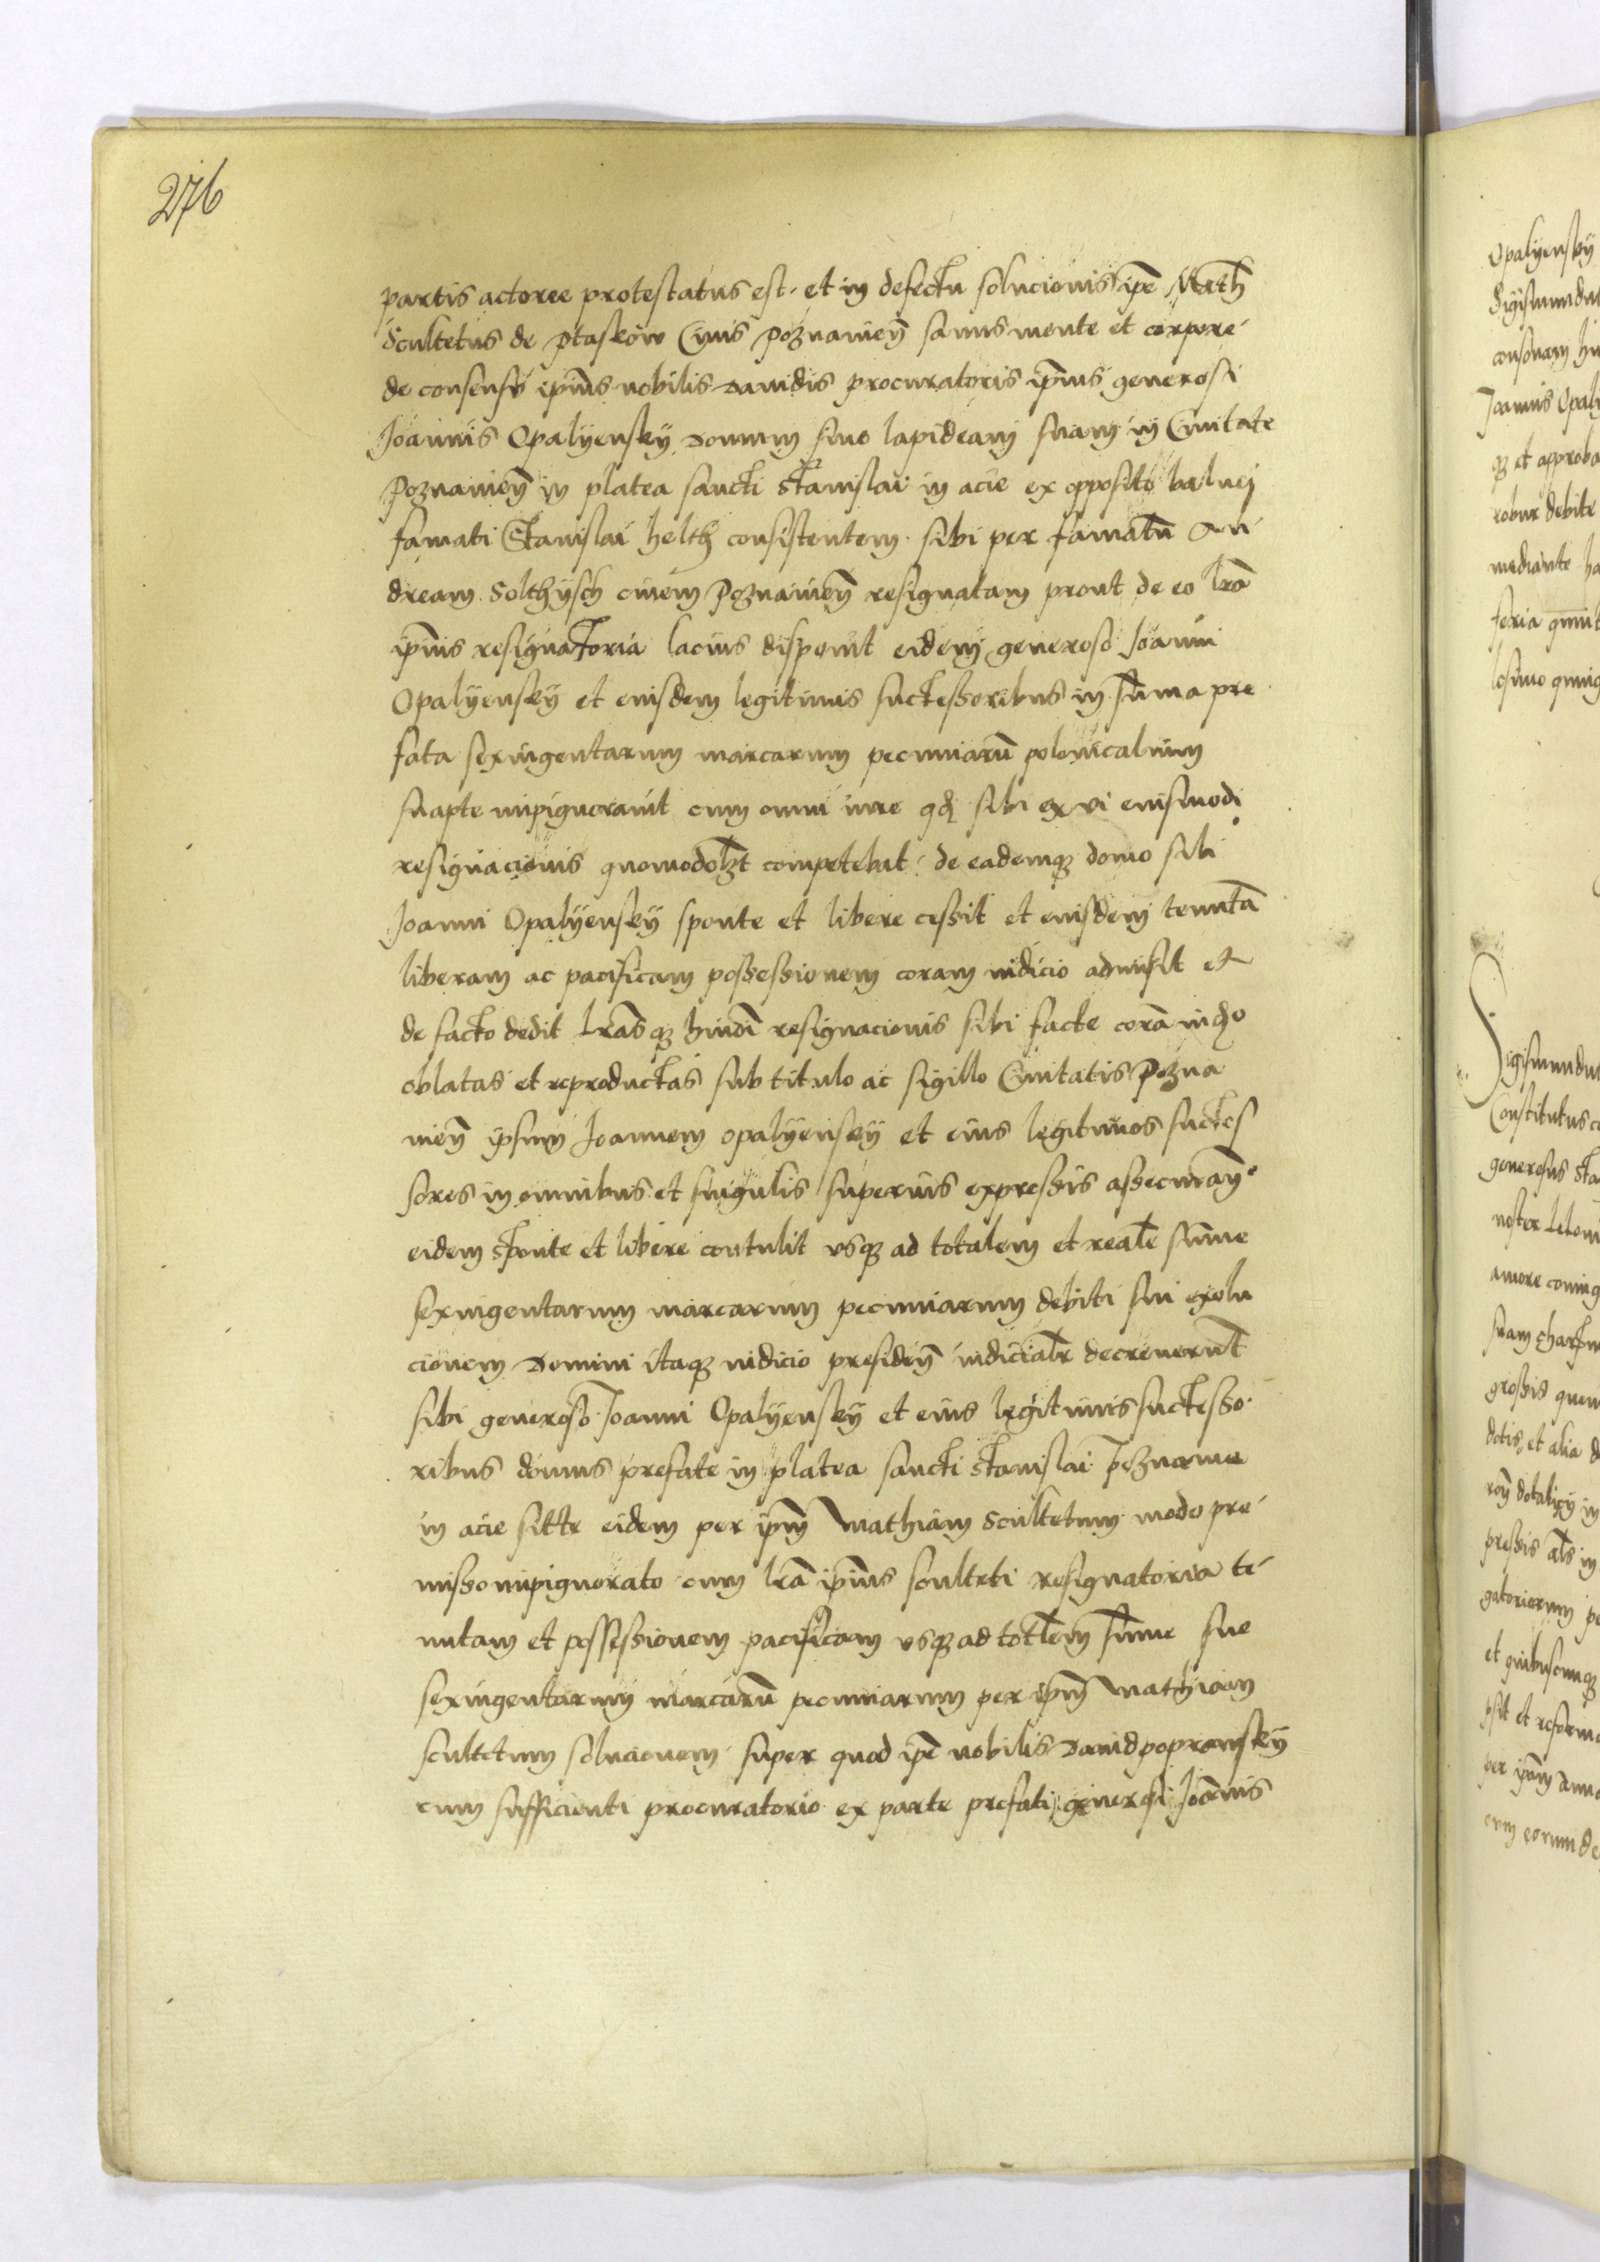 276
partis actoree protestatus est. et in defectu solucionis ipē Math
Scultetus de ptaskow Civis Poznanieñ sanus mente et corpore
de consensu ipīus nobilis Davidis procuratoris ipīus generosi
Joannis Opalyensky Domum sive lapideam suam in Civitate
Poznanieñ in platea sancti Stanislai in acie ex opposito balnei
famati Stanislai helth consistentem sibi per famatū An
dream Solthysch civem Poznanieñ resignatam prout de eo lrā
ipīus resignatoria lacius disponit eidem generoso Joanni
Opalyensky et eiusdem legitimis successoribus in sūma pre
fata sexingentarum marcarum pecuniarū polonicalium
suapte inpignoravit cum omni iure qđ sibi ex vi eiusmodi
resignacionis quomodolʒt competebat de eademqʒ domo sibi
Joanni Opalyensky sponte et libere cessit et eiusdem tenutā
liberam ac pacificam possessionem coram iudicio admisit et
de facto dedit lrasqʒ hmōi resignacionis sibi facte corā iudo
oblatas et reproductas sub titulo ac sigillo Civitatis Pozna
nieñ ipsum Joannem opalyensky et eius legitimos succes
sores in omnibus et singulis superius expressis assecurañ
eidem sponte et libere contulit usqʒ ad totalem et realē sūme
sexingentarum marcarum pecuniarum debiti sui exolu
cionem Domini itaqʒ iudicio presideñ iudicialr decreverūt
sibi generoso Joanni Opalyensky et eius legitimis successo
ribus domus prefate in platea sancti Stanislai Poznanie
in acie site eidem per ipm̄ Mathiam Scultetum modo pre
misso inpignorato cum lrā ipīus sculteti resignatoria te
nutam et possessionem pacificam usqʒ ad totlem sūme sue
sexingentarum marcarū pecuniarum per ipm̄ Mathiam
scultetum solucionem super quod ipē nobilis David popowsky
cum sufficienti procuratorio ex parte prefati generosi Joānis
Opalyensky
Sigismundu
consonam hu
Joannis Opaly
qʒ et approba
robur debite
mediante ha
feria quint
losimo quing
Sigismundu
Constitutus co
generosus Sta
grossis quem
dotis et alia d
et quibuscunqʒ